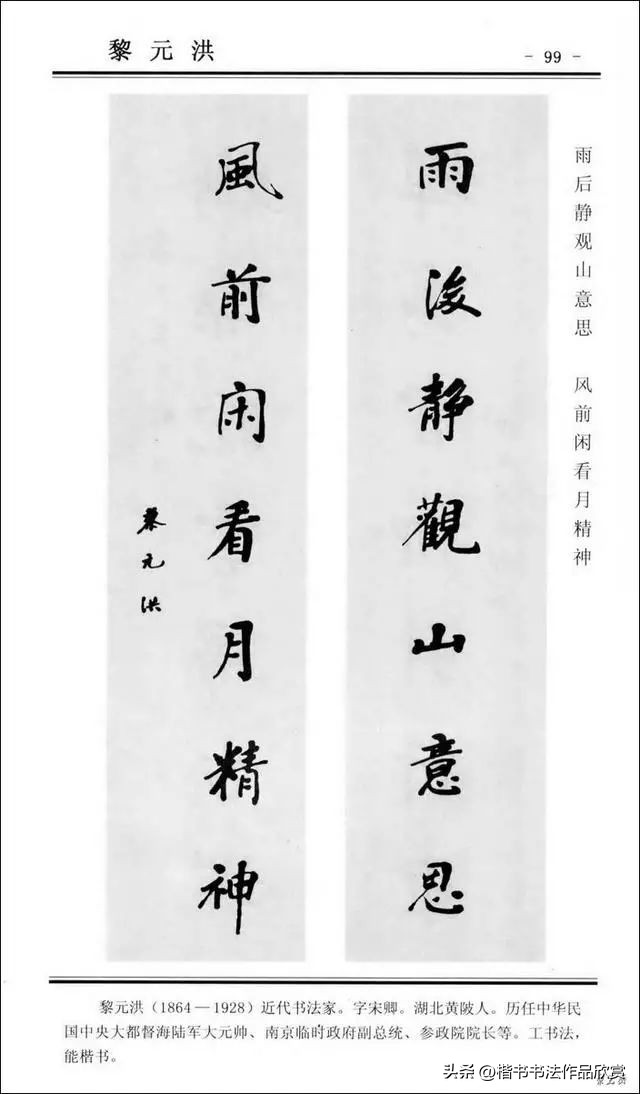 黎元洪
- 99 -
雨后静观山意思 风前闲看月精神
雨後静觀山意思
風前闲看月精神
黎元洪
黎元洪（1864—1928）近代书法家。字宋卿。湖北黄陂人。历任中华民
国中央大都督海陆军大元帅、南京临时政府副总统、参政院院长等。工书法，
能楷书。
头条 @楷书书法作品欣赏